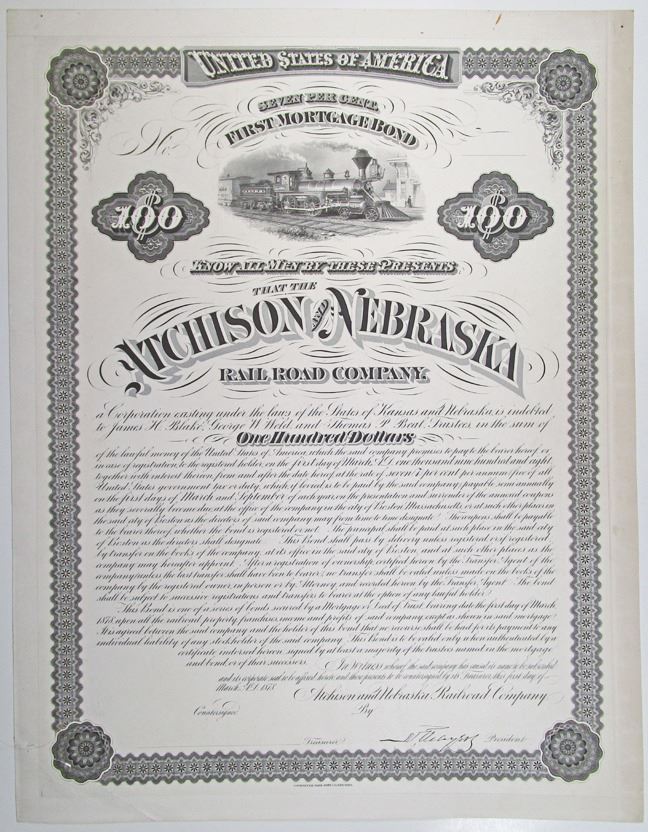 UNITED STATES OF AMERICA
SEVEN PER CENT.
FIRST MORTGAGE BOND
No.
$100
$100
KNOW ALL MEN BY THESE PRESENTS
THAT THE
ATCHISON AND NEBRASKA
RAIL ROAD COMPANY.
a Corporation existing under the laws of the States of Kansas and Nebraska, is indebted
to James H. Blake, George W. Weld and Thomas P. Beal, Trustees, in the sum of
One Hundred Dollars
of the lawful money of the United States of America, which the said company promises to pay to the bearer hereof, or
in case of registration, to the registered holder, on the first day of March, A.D. one thousand nine hundred and eight,
together with interest thereon from and after the date hereof at the rate of seven (7) per cent per annum, free of all
United States government tax or duty, which if levied is to be paid by the said company, payable semi annually
on the first days of March and September of each year, on the presentation and surrender of the annexed coupons
as they severally become due, at the office of the company in the city of Boston, Massachusetts, or at such other places in
the said city of Boston as the directors of said company may from time to time designate. The coupons shall be payable
to the bearer thereof, whether the bond is registered or not. The principal shall be paid at such place in the said city
of Boston as the directors shall designate. This Bond shall pass by delivery unless registered, or if registered,
by transfer on the books of the company, at its office in the said city of Boston, and at such other places as the
company may hereafter appoint. After a registration of ownership, certified hereon by the Transfer Agent of the
company, unless the last transfer shall have been to bearer, no transfer shall be valid unless made on the books of the
company by the registered owner, in person or by Attorney, and recorded hereon by the Transfer Agent. The bond
shall be subject to successive registrations and transfers to bearer at the option of any lawful holder.
This Bond is one of a series of bonds secured by a Mortgage or Deed of Trust, bearing date the first day of March
1878, upon all the railroad property, franchises, income and profits of said company, except as shown in said mortgage.
It is agreed between the said company and the holder of this bond that no recourse shall be had for its payment to any
individual liability of any stockholder of the said company. This Bond is to be valid only when authenticated by a
certificate indorsed hereon, signed by at least a majority of the trustees named in the mortgage
and bond, or of their successors. In Witness whereof, the said company has caused its name to be subscribed
and its corporate seal to be affixed hereto, and these presents to be countersigned by its Treasurer, this first day of
March, A.D. 1878.
Atchison and Nebraska Railroad Company
Countersigned
By
Treasurer
President